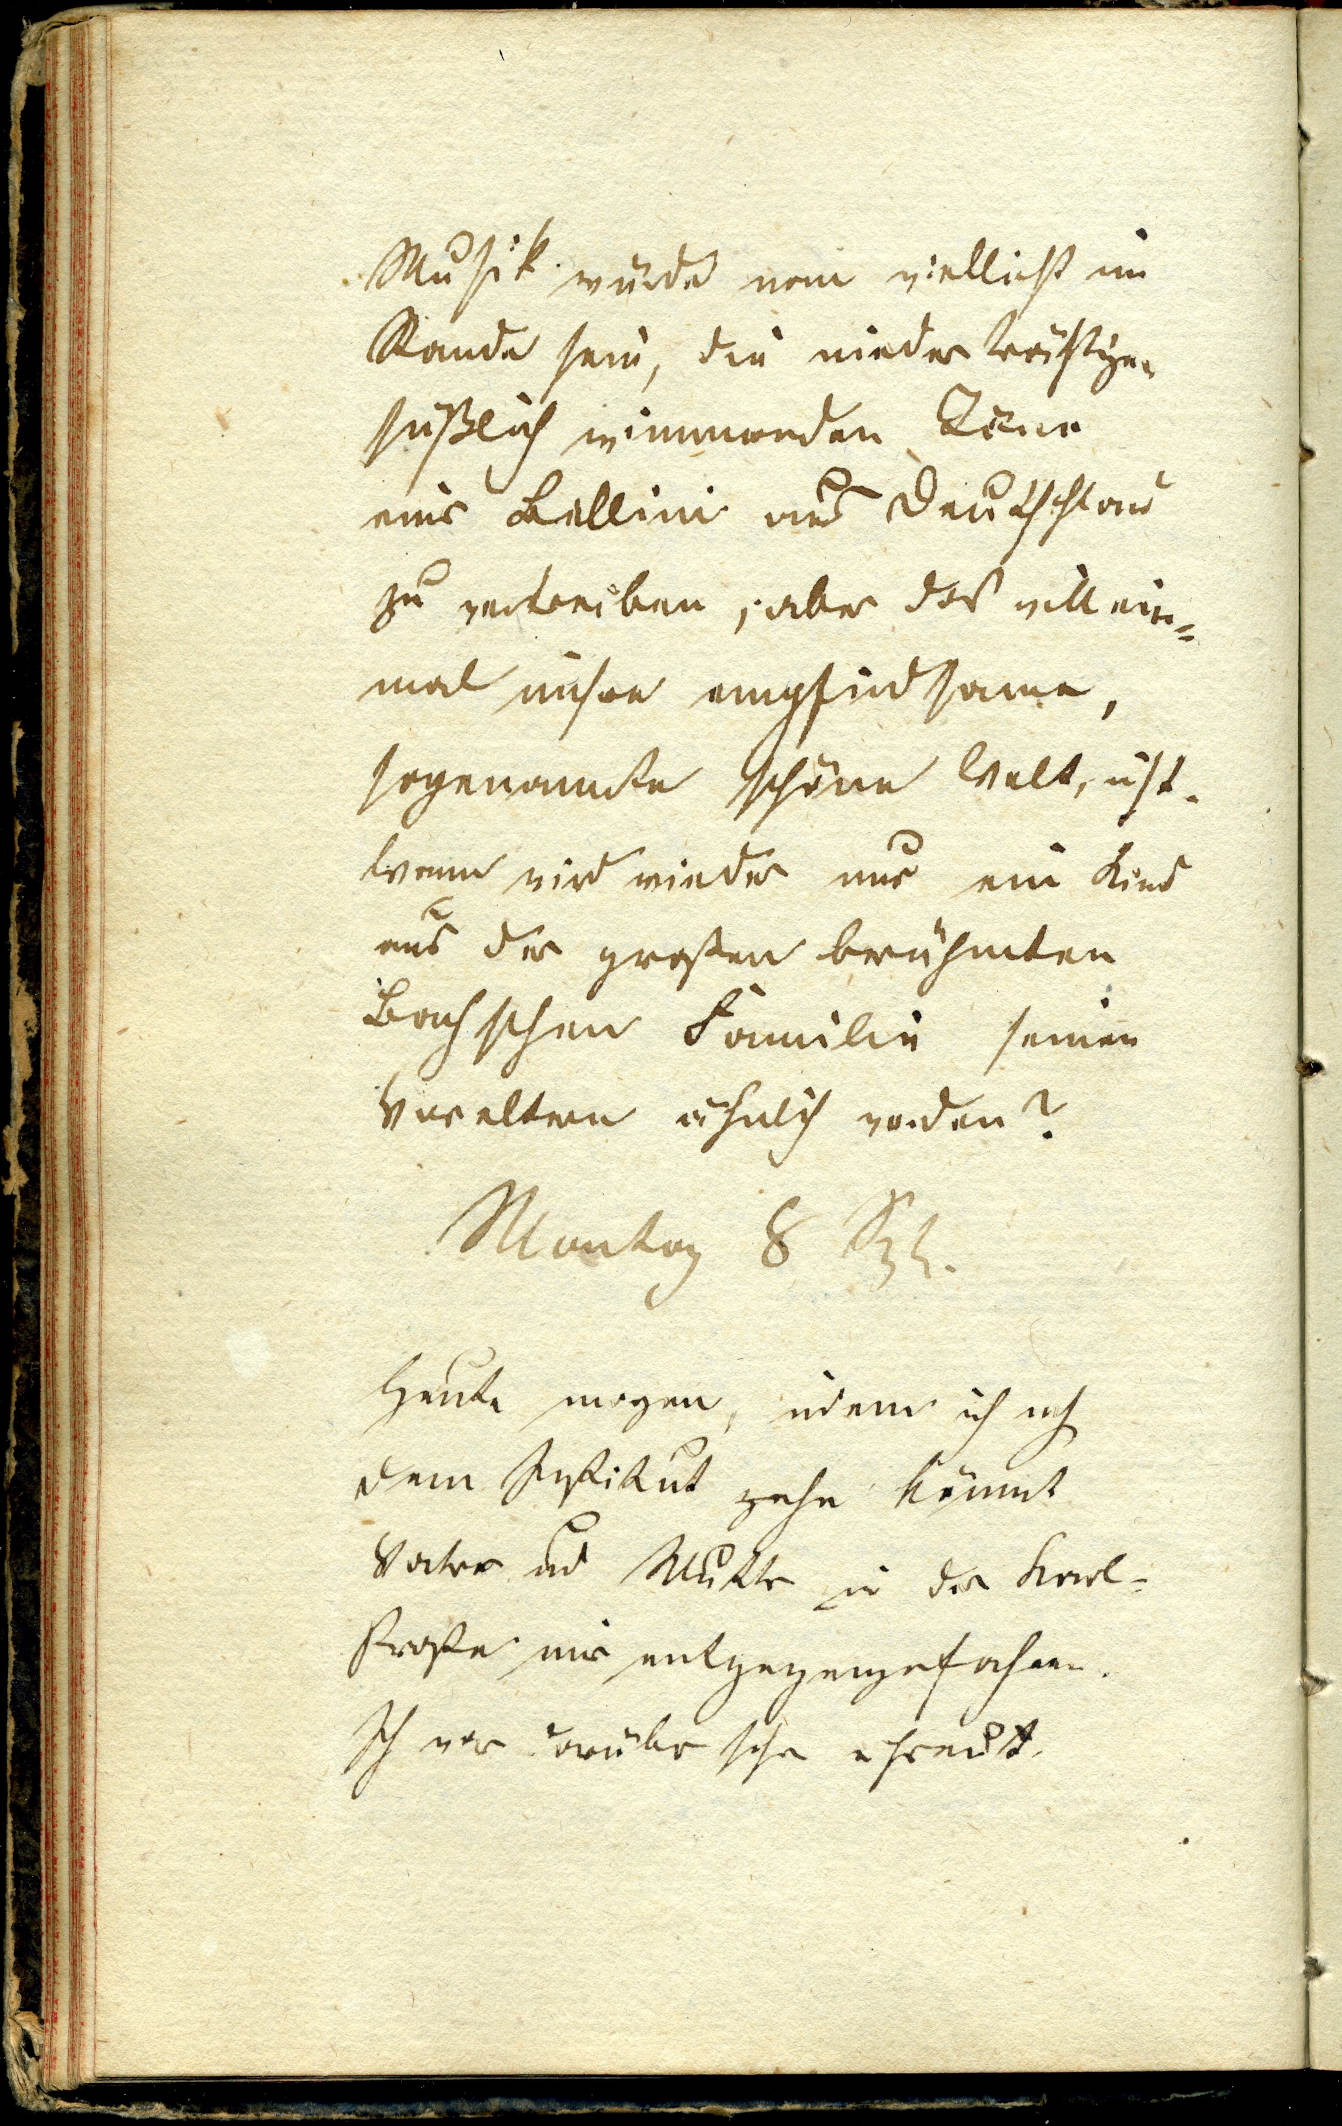 Musik würde nun viellicht im
Stande sein, die niederträchtigen
süßlich wimmernden Töne
eines Bellini aus Deutschland
zu vertreiben, aber das will ein-
mal unsere empfindsame,
sogenannte schöne Welt, nicht.
Wann wird wieder nur ein Kind
aus der großen berühmten
Bachschen Familie seinen
Voreltern ähnlich werden?
Montag 8
Heute morgen, indem ich nach
dem Institut gehe kömmt
Vater und Mutter in der Karl-
straße mir entgegengefahren.
Ich war darüber sehr erfreut.